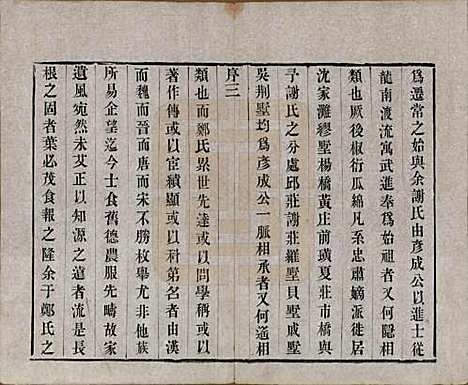 爲遷常之始與余謝氏由彥成公以進士從
龍南渡流寓武進奉爲始祖者又何隱相
類也厥後椒衍瓜綿凡系忠肅嫡派徙居
沈家灘繆墅楊橋黃庄前璜夏莊市橋與
予謝氏之分處邱莊謝莊羅墅貝墅戚墅
吳荆墅均爲彥成公一脈相承者又何適相
序三
類也而鄭氏累世先達或以問學稱或以
著作傳或以宦績顯或以科第名者由漢
而魏而晉而唐而宋不勝枚舉尤非他族
所易企望迄今士食舊德農服先疇故家
遺風宛然未艾正以知源之遠者流是長
根之固者葉必茂食報之隆余于鄭氏之